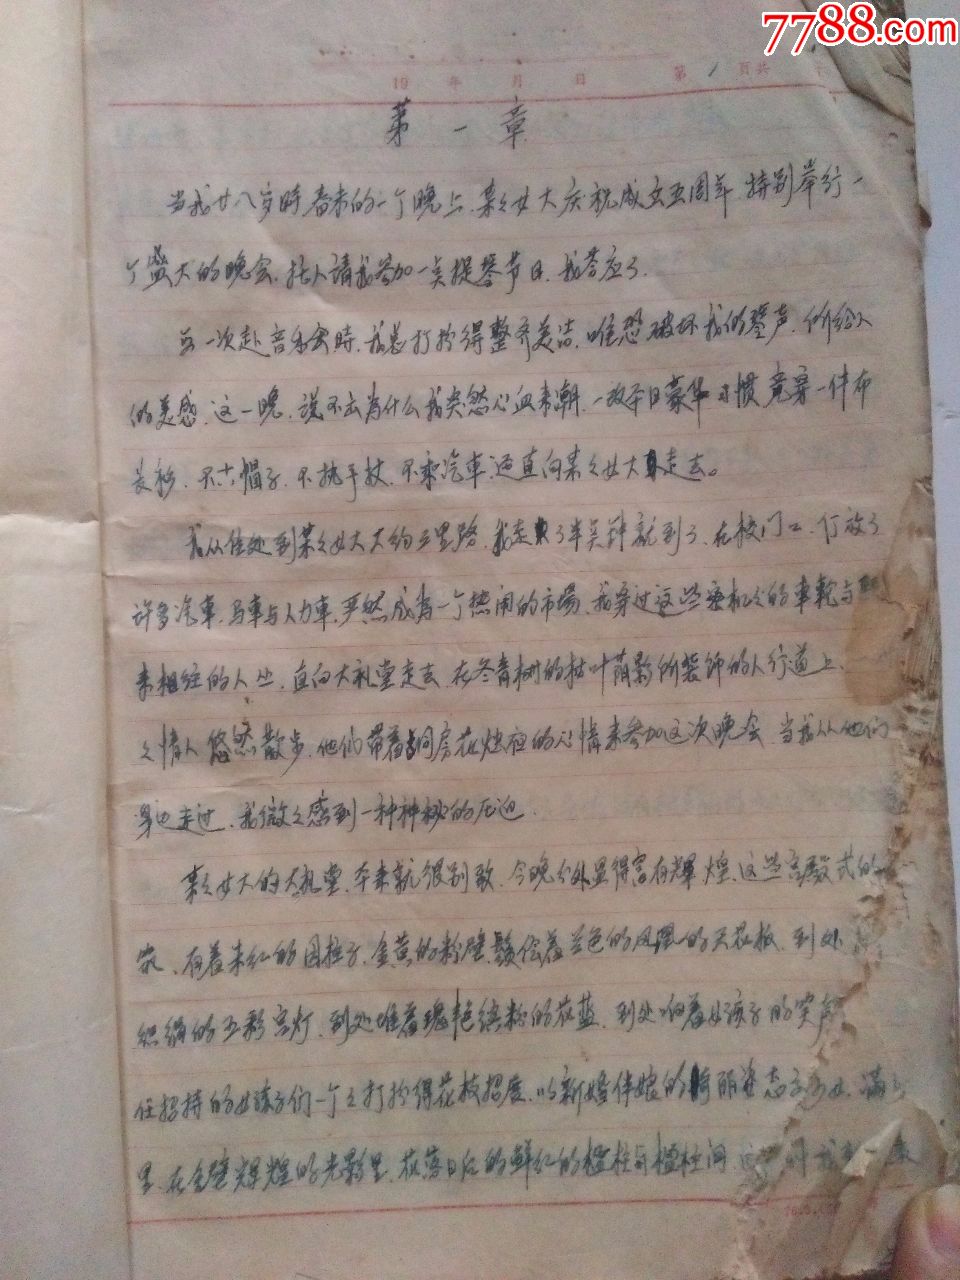 7788.com
19 年 月 日 第 1 页共
第一章
当我廿八岁时春末的一个晚上、某々女大庆祝成立五周年、特别举行一
个盛大的晚会、托人請我参加一点提琴节目、我答应了.
每一次赴音乐会時、我总打扮得整齐美洁、唯恐破坏我的琴声、所给人
的美感、这一晚、说不出为什么我突然心血来潮、一改平日豪华习惯竟穿一件布
长衫、不 帽子、不执手杖、不乘汽車、逕直向某々女大走去。
我从住处到某々女大大约三里路、我走了半点钟就到了、在校门口、停放了
许多汽車、马車与人力車、严然成为一个热闹的市场、我穿过这些 的車輛与
来相往的人丛、直向大礼堂走去、在冬青树的树叶荫影所装饰的人行道上、
々情人悠然散步、他们带着洞房花烛夜的心情来参加这次晚会、当我从他们
身边走过、我微々感到一种神秘的压迫.
某々女大的大礼堂、本来就很别致、今晚分外显得富有輝煌、这些宫殿式的
筑、有着朱红的圆柱子、金黄的粉壁、 绘着兰色的凤凰的天花板、到处
的五彩宫灯、到处堆着瑰艳缤纷的花蓝、到处响着女孩子的笑声
任招待的女孩子们一个々打扮得花枝招展、以新婚伴娘的 丽姿态 满々
里、在金壁辉煌的光影里、在 的鲜红的楹柱与楹柱间